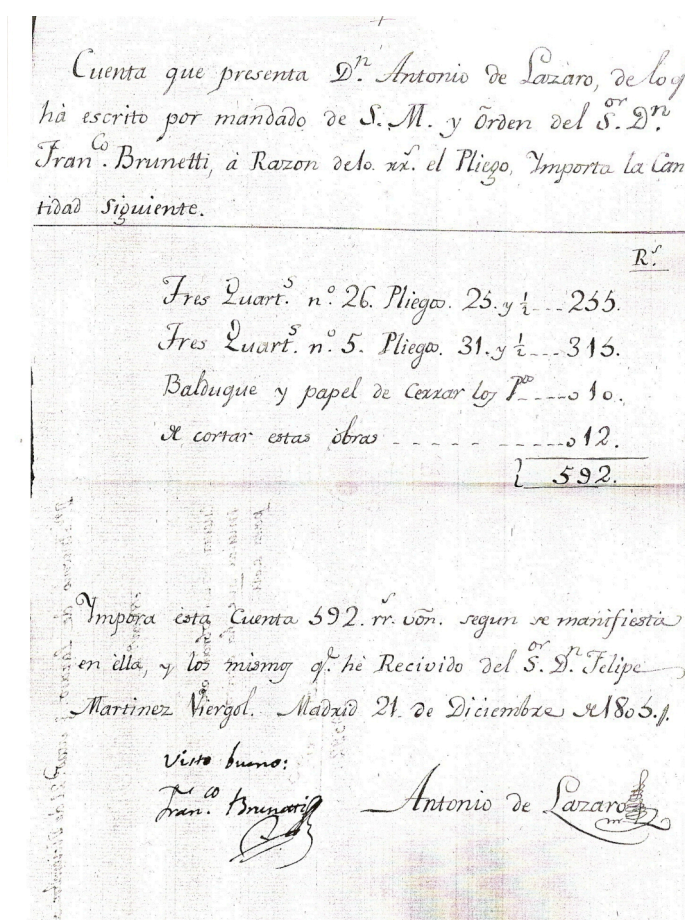 Cuenta que presenta D.n Antonio de Lazaro, de lo q
há escrito por mandado de S. M. y Orden del S.or D.n
Fran.co Brunetti, á Razon de 10. rr.s el Pliego, Importa la Can
tidad Siguiente.
R.s
Tres Quart.s n.o 26. Pliegos. 25. y 1/2 ---- 255.
Tres Quart.s n.o 5. Pliegos. 31. y 1/2 ---- 315.
Balduque y papel de Cerrar los P.os ---- 010.
de cortar estas obras - - - - - - ---- 012.
592.
Ympora esta Cuenta 592. rr. von. segun se manifiesta
en ella, y los mismos q.e hé Recivido del S.or D.n Felipe
Martinez Viergol. Madrid 21 de Diciembre de 1805.
Visto bueno:
Fran.co Brunetti
Antonio de Lazaro